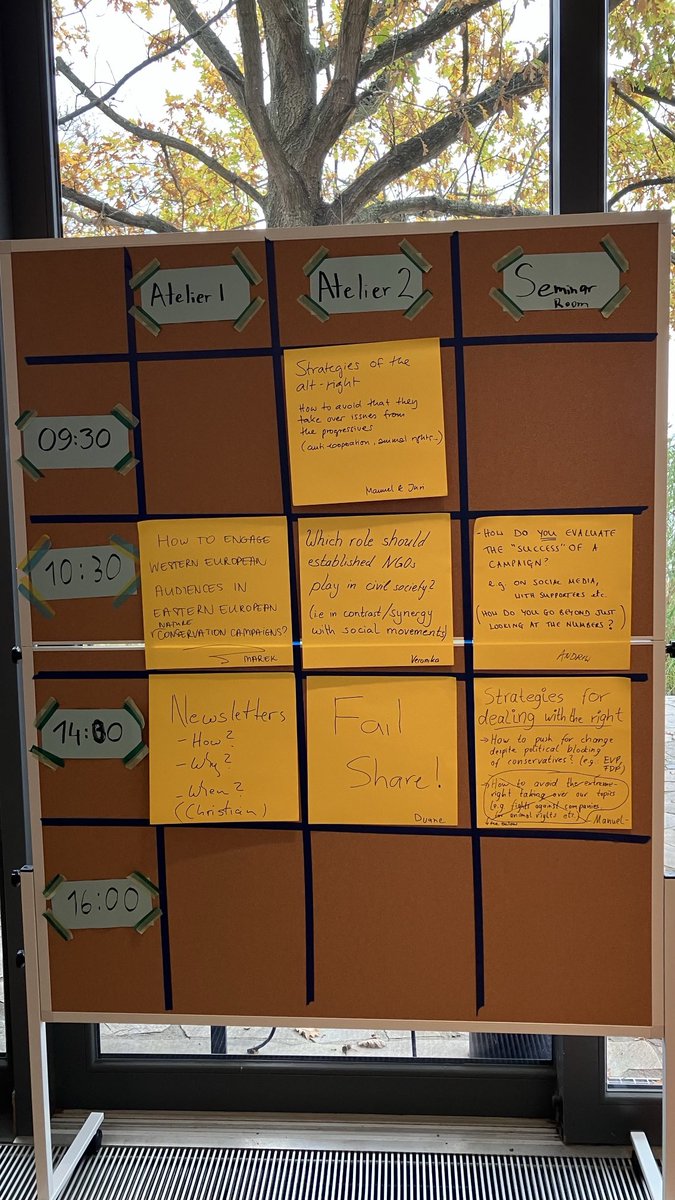 Atelier 1
Atelier 2
Seminar
Room
09:30
Strategies of the
alt-right
How to avoid that they
take over issues from
the progressives
(anti corporation, animal rights...)
Manuel & Jan
10:30
HOW TO ENGAGE
WESTERN EUROPEAN
AUDIENCES IN
EASTERN EUROPEAN
NATURE
CONSERVATION CAMPAIGNS?
MAREK
Which role should
established NGOs
play in civil society?
(ie in contrast/synergy
with social movements)
Veronika
HOW DO YOU EVALUATE
THE "SUCCESS" OF A
CAMPAIGN?
e.g. ON SOCIAL MEDIA,
WITH SUPPORTERS etc.
(HOW DO YOU GO BEYOND JUST
LOOKING AT THE NUMBERS?)
14:00
Newsletters
- How?
- Why?
- When?
(Christian)
Fail
Share!
Duane
Strategies for
dealing with the right
→ How to push for change
despite political blocking
of conservatives? (e.g. EVP,
FDP)
→ How to avoid the extreme-
right taking over our topics
(e.g. fights against companies,
for animal rights etc.)
- Manuel -
16:00